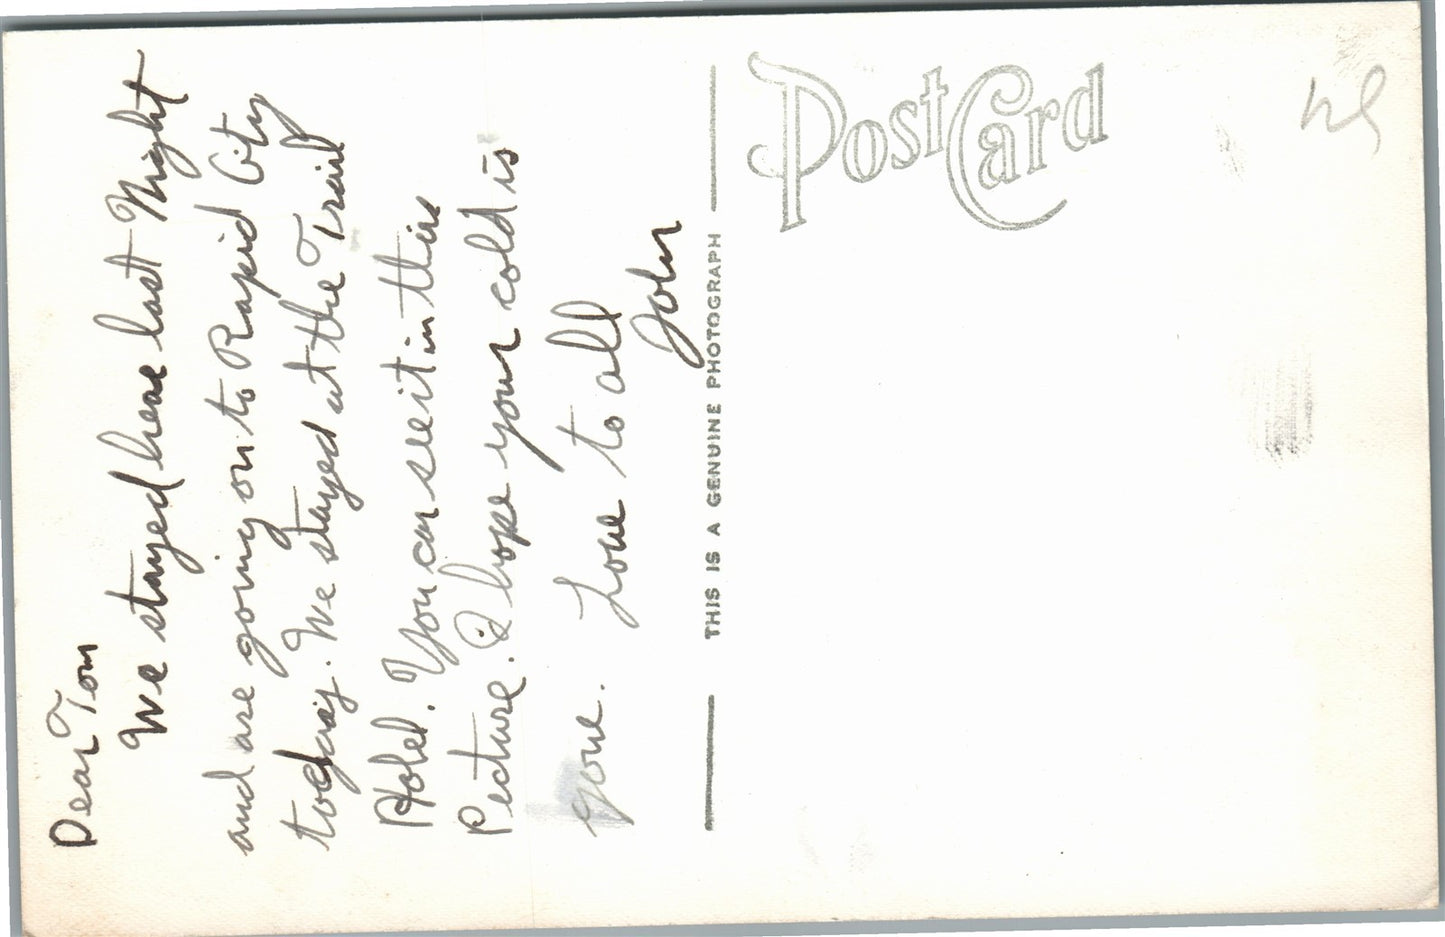 Dear Tom
We stayed here last Night
and are going on to Rapid City
today. We stayed at the Trail
Hotel. You can see it in this
Picture. I hope your cold is
gone. Love to all
John
THIS IS A GENUINE PHOTOGRAPH
Post Card